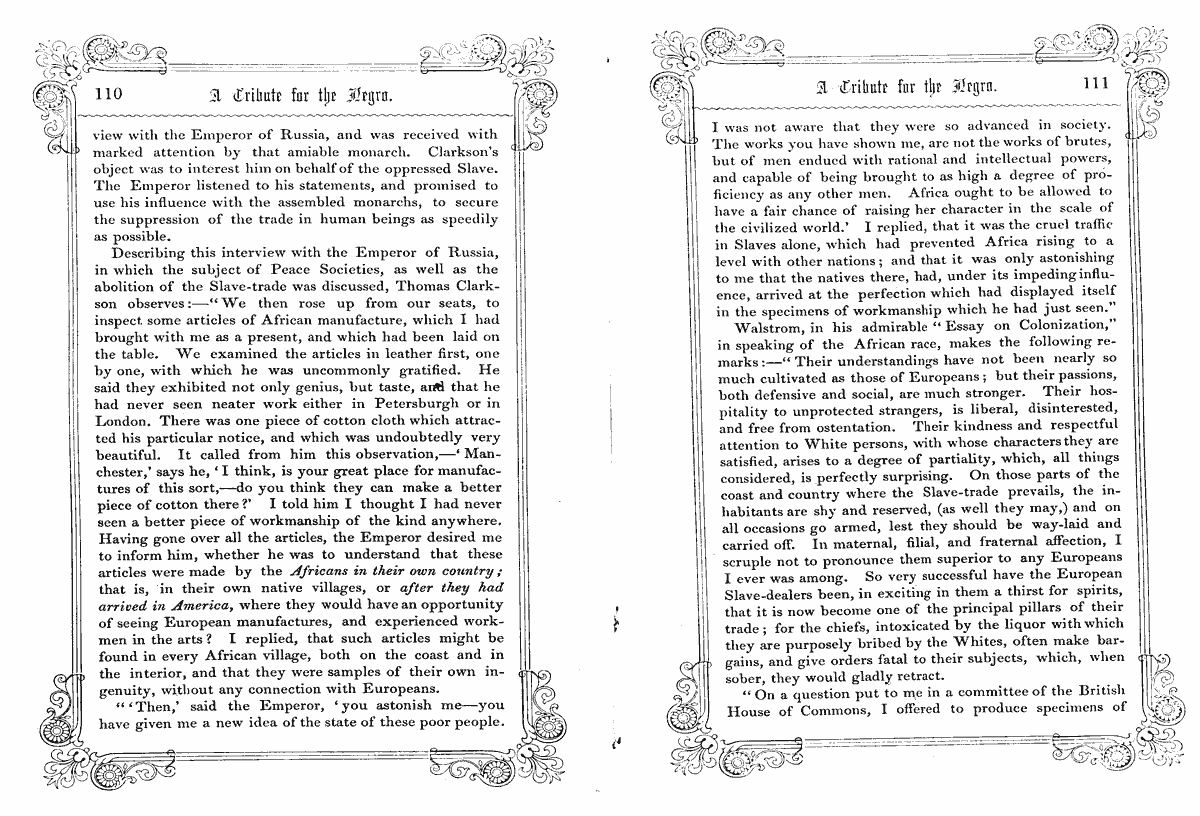 110 A Tribute for the Negro.
view with the Emperor of Russia, and was received with
marked attention by that amiable monarch. Clarkson's
object was to interest him on behalf of the oppressed Slave.
The Emperor listened to his statements, and promised to
use his influence with the assembled monarchs, to secure
the suppression of the trade in human beings as speedily
as possible.
Describing this interview with the Emperor of Russia,
in which the subject of Peace Societies, as well as the
abolition of the Slave-trade was discussed, Thomas Clark-
son observes:—"We then rose up from our seats, to
inspect some articles of African manufacture, which I had
brought with me as a present, and which had been laid on
the table. We examined the articles in leather first, one
by one, with which he was uncommonly gratified. He
said they exhibited not only genius, but taste, and that he
had never seen neater work either in Petersburgh or in
London. There was one piece of cotton cloth which attrac-
ted his particular notice, and which was undoubtedly very
beautiful. It called from him this observation,—'Man-
chester,' says he, 'I think, is your great place for manufac-
tures of this sort,—do you think they can make a better
piece of cotton there?' I told him I thought I had never
seen a better piece of workmanship of the kind anywhere.
Having gone over all the articles, the Emperor desired me
to inform him, whether he was to understand that these
articles were made by the Africans in their own country;
that is, in their own native villages, or after they had
arrived in America, where they would have an opportunity
of seeing European manufactures, and experienced work-
men in the arts? I replied, that such articles might be
found in every African village, both on the coast and in
the interior, and that they were samples of their own in-
genuity, without any connection with Europeans.
"'Then,' said the Emperor, 'you astonish me—you
have given me a new idea of the state of these poor people.
A Tribute for the Negro. 111
I was not aware that they were so advanced in society.
The works you have shown me, are not the works of brutes,
but of men endued with rational and intellectual powers,
and capable of being brought to as high a degree of pro-
ficiency as any other men. Africa ought to be allowed to
have a fair chance of raising her character in the scale of
the civilized world.' I replied, that it was the cruel traffic
in Slaves alone, which had prevented Africa rising to a
level with other nations; and that it was only astonishing
to me that the natives there, had, under its impeding influ-
ence, arrived at the perfection which had displayed itself
in the specimens of workmanship which he had just seen."
Walstrom, in his admirable "Essay on Colonization,"
in speaking of the African race, makes the following re-
marks:—"Their understandings have not been nearly so
much cultivated as those of Europeans; but their passions,
both defensive and social, are much stronger. Their hos-
pitality to unprotected strangers, is liberal, disinterested,
and free from ostentation. Their kindness and respectful
attention to White persons, with whose characters they are
satisfied, arises to a degree of partiality, which, all things
considered, is perfectly surprising. On those parts of the
coast and country where the Slave-trade prevails, the in-
habitants are shy and reserved, (as well they may,) and on
all occasions go armed, lest they should be way-laid and
carried off. In maternal, filial, and fraternal affection, I
scruple not to pronounce them superior to any Europeans
I ever was among. So very successful have the European
Slave-dealers been, in exciting in them a thirst for spirits,
that it is now become one of the principal pillars of their
trade; for the chiefs, intoxicated by the liquor with which
they are purposely bribed by the Whites, often make bar-
gains, and give orders fatal to their subjects, which, when
sober, they would gladly retract.
"On a question put to me in a committee of the British
House of Commons, I offered to produce specimens of